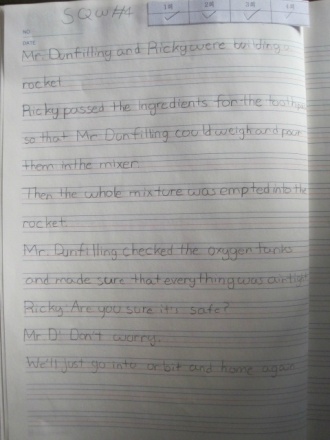 SQW#1
1회 2회 3회
NO.
DATE
Mr. Dunfilling and Ricky were building a
rocket.
Ricky passed the ingredients for the toothpaste
so that Mr. Dunfilling could weigh and pour
them in the mixer.
Then the whole mixture was emptied into the
rocket.
Mr. Dunfilling checked the oxygen tanks
and made sure that everything was airtight
Ricky: Are you sure it's safe?
Mr. D: Don't worry.
We'll just go into orbit and home again.